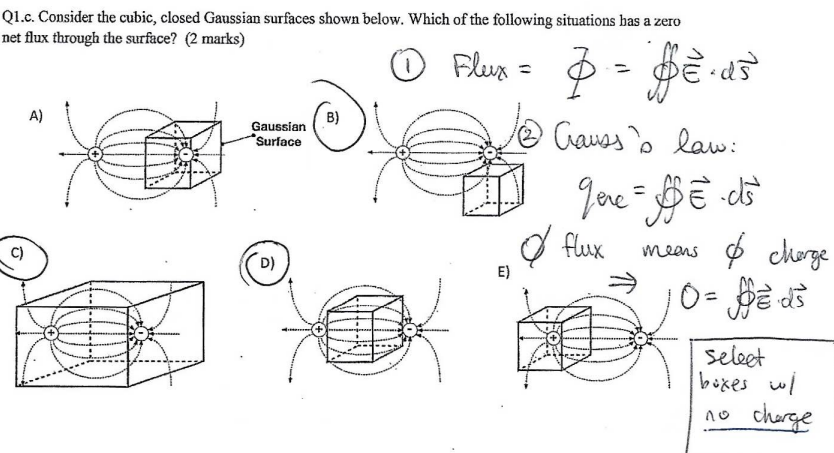 Q1.c. Consider the cubic, closed Gaussian surfaces shown below. Which of the following situations has a zero
net flux through the surface? (2 marks)
① Flux = Φ = ∯E⃗·ds⃗
A)
Gaussian
Surface
B)
② Gauss's law:
qenc = ∯E⃗·ds⃗
C)
D)
E)
∅ flux means ∅ charge
⇒ 0 = ∯E⃗·ds⃗
select
boxes w/
no charge
+
-
+
-
+
-
+
-
+
-